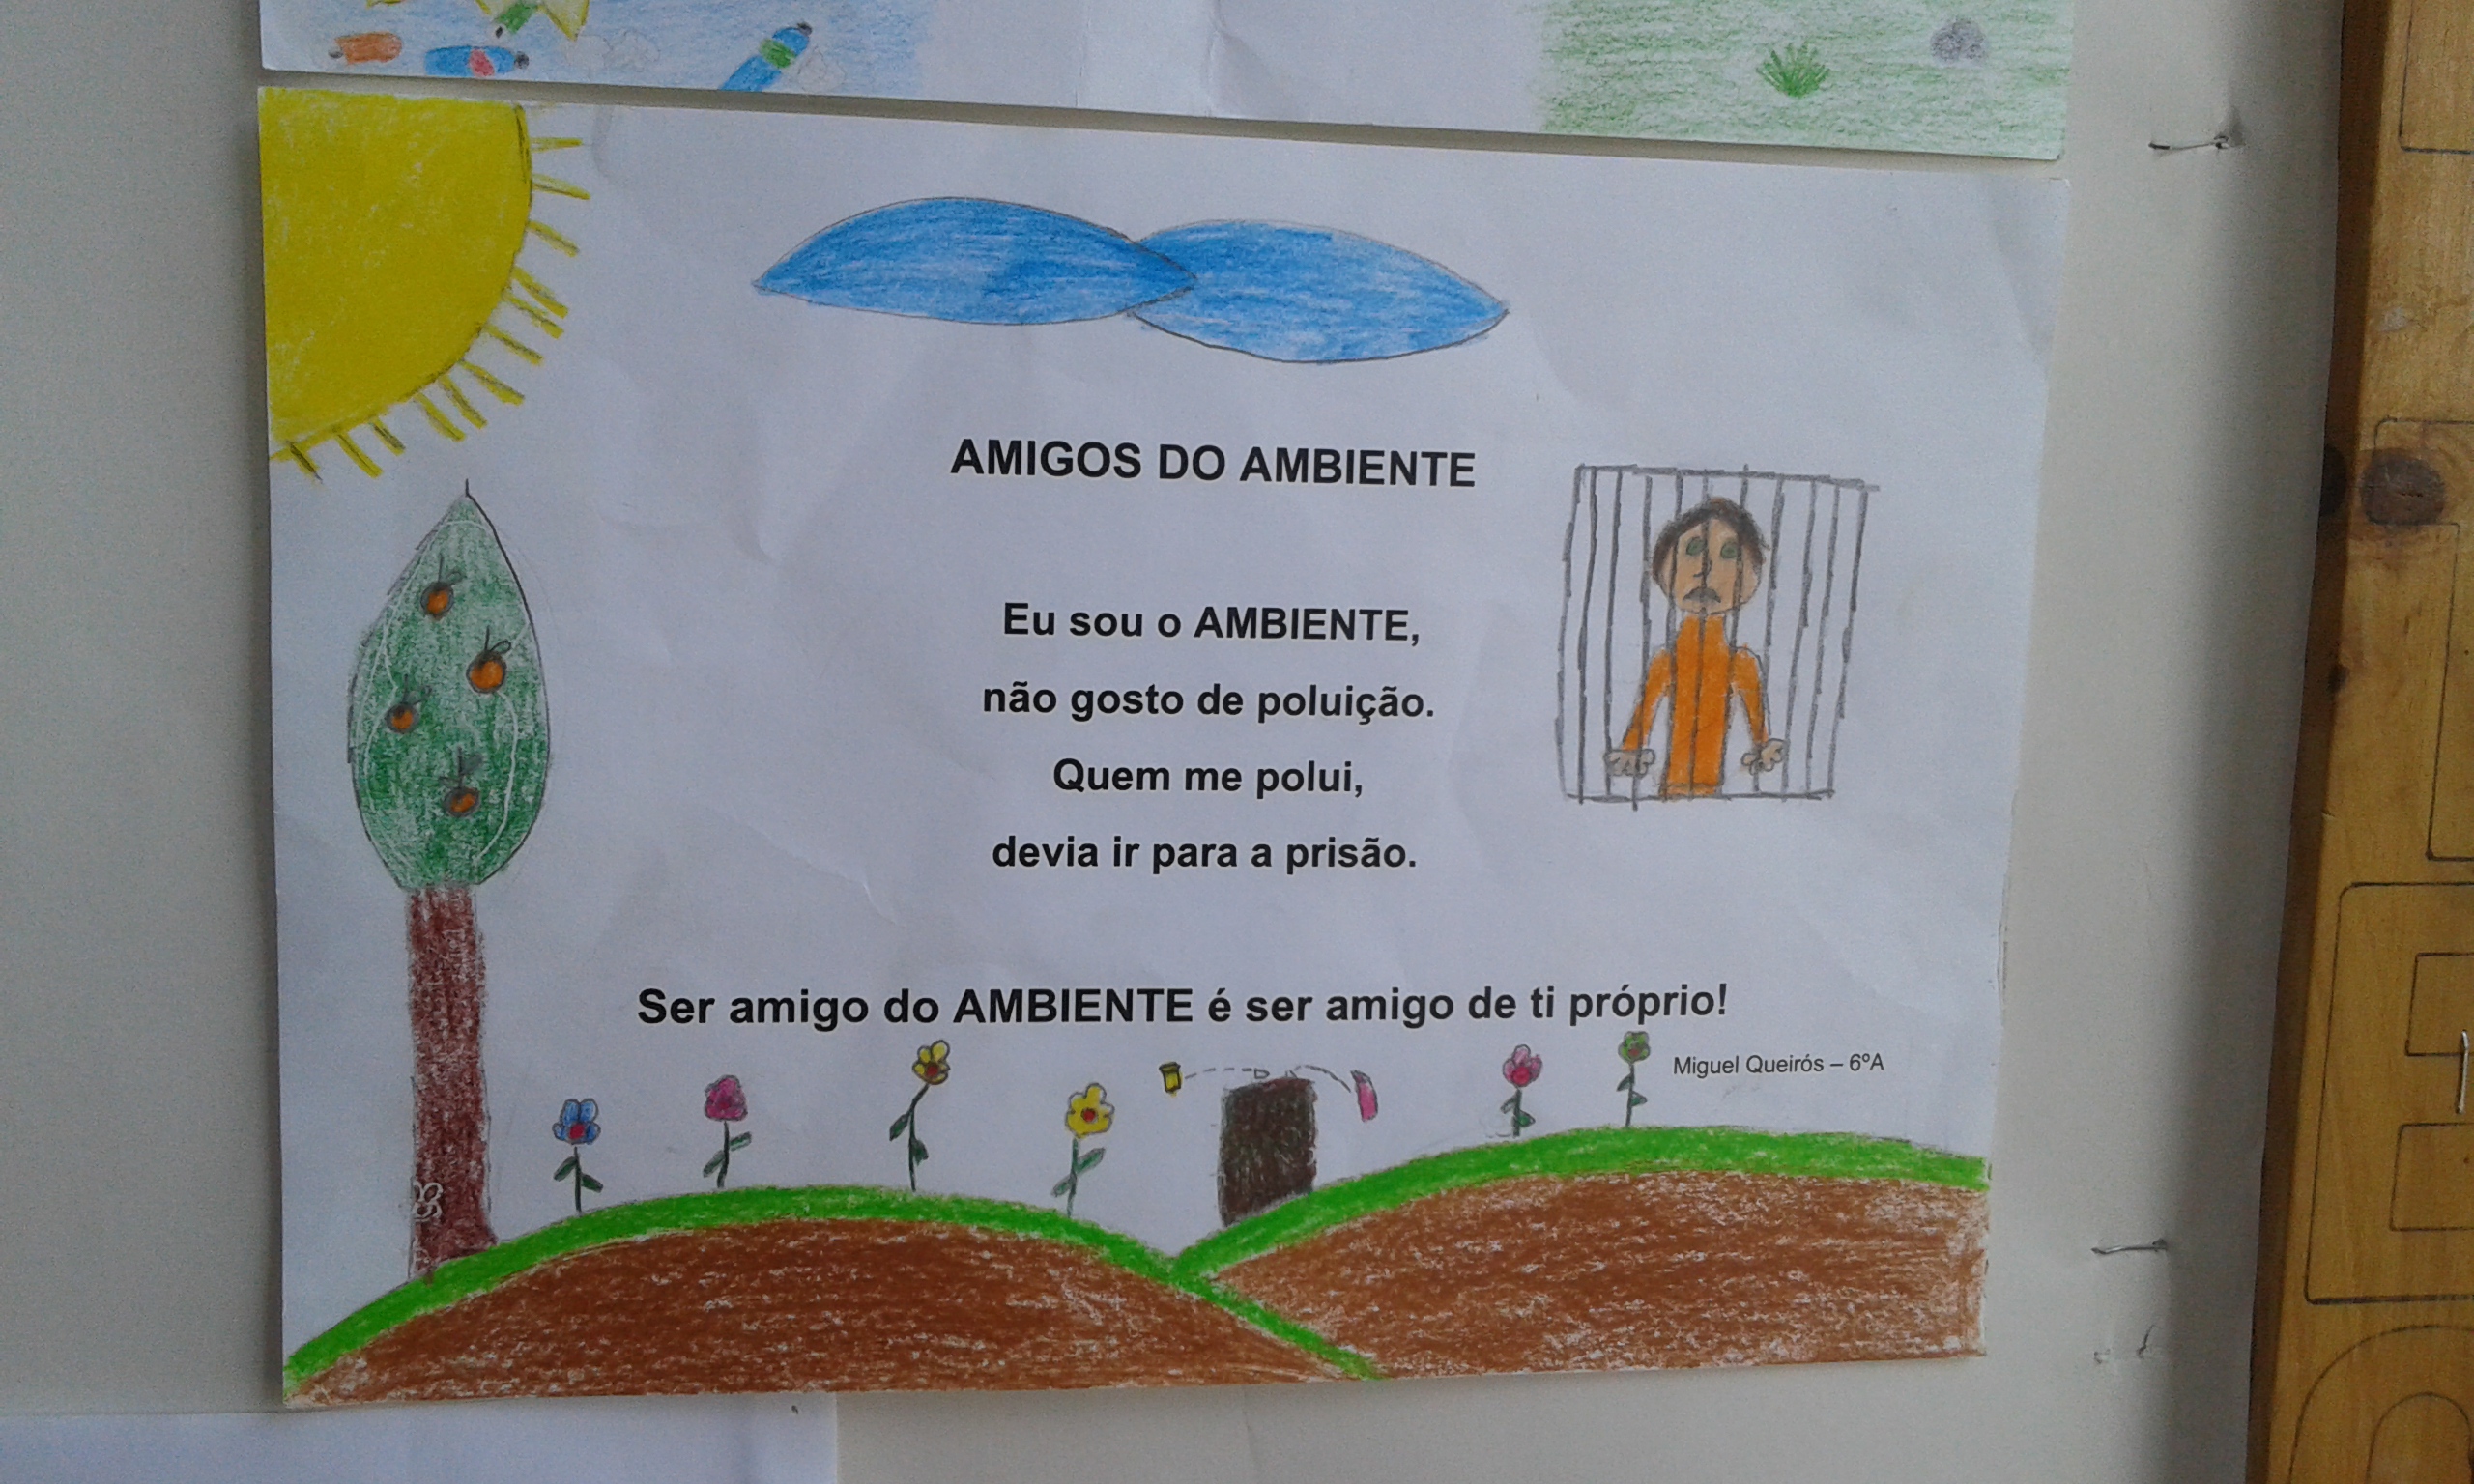 AMIGOS DO AMBIENTE
Eu sou o AMBIENTE,
não gosto de poluição.
Quem me polui,
devia ir para a prisão.
Ser amigo do AMBIENTE é ser amigo de ti próprio!
Miguel Queirós – 6ºA